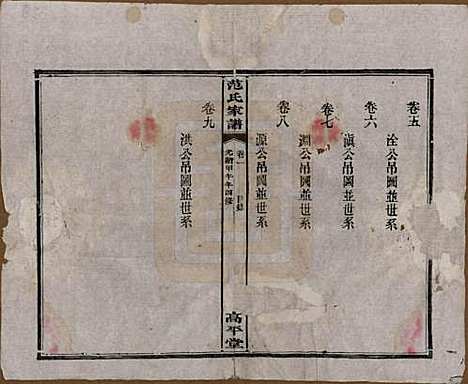 卷五
淦公吊圖並世系
卷六
滇公吊圖並世系
卷七
淵公吊圖並世系
卷八
源公吊圖並世系
范氏家譜
卷一
目錄
光緒甲午年四修
高平堂
卷九
洪公吊圖並世系